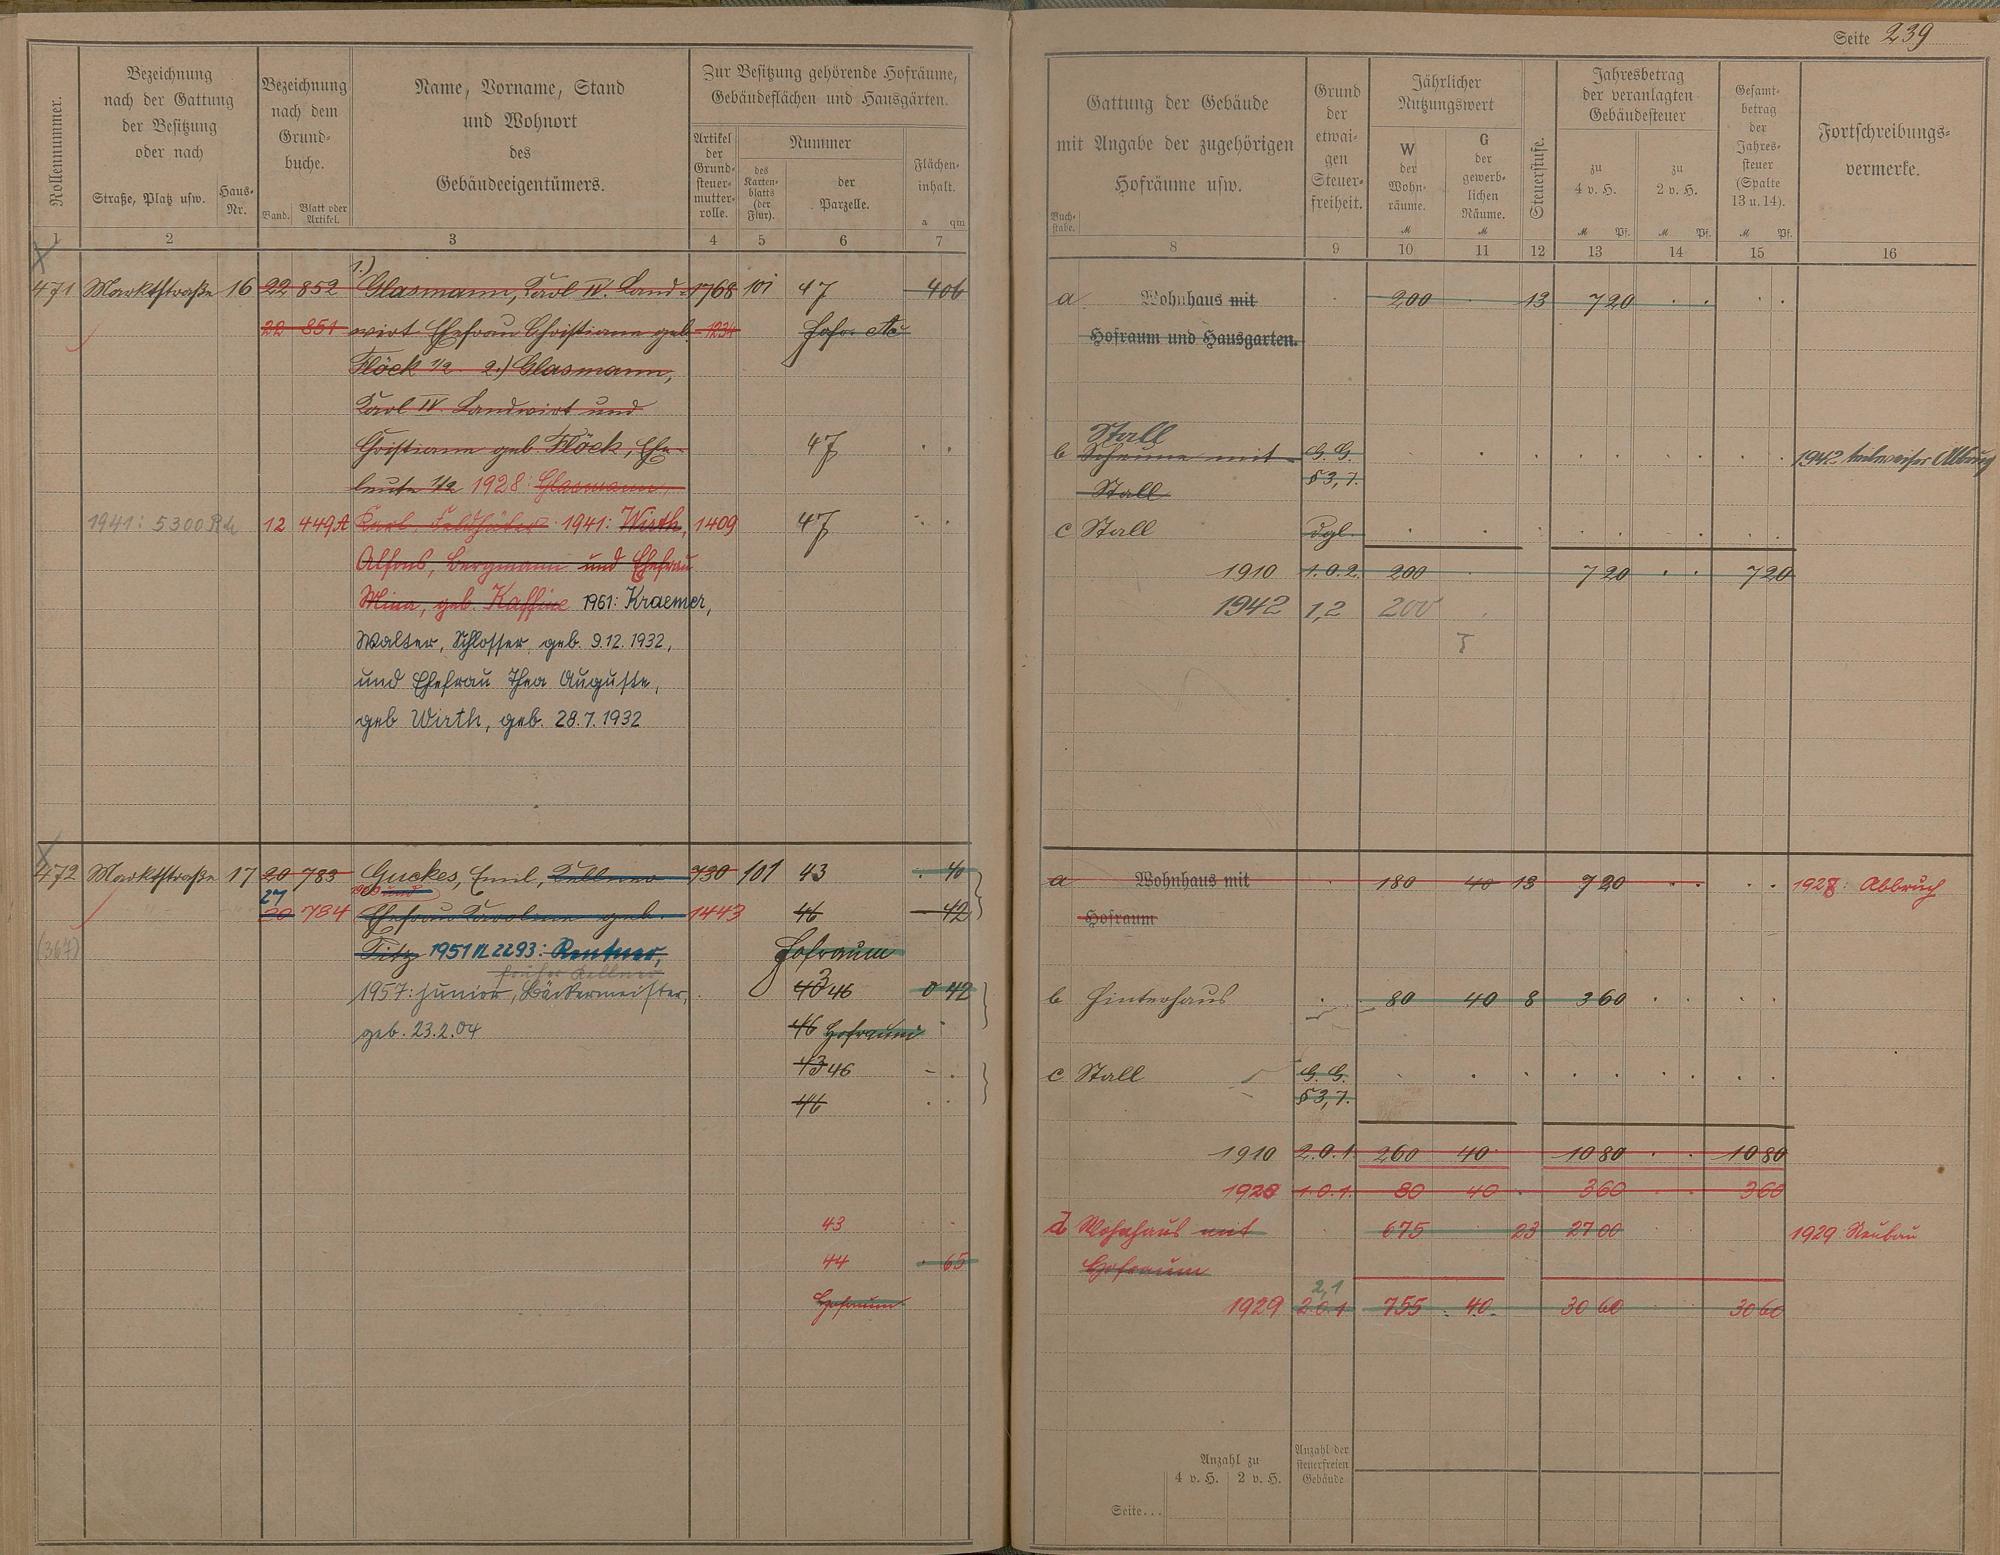 Seite 239
Rollennummer.
Bezeichnung
nach der Gattung
der Besitzung
oder nach
Straße, Platz usw.
Haus-
Nr.
Bezeichnung
nach dem
Grund-
buche.
Band.
Blatt oder
Artikel.
Name, Vorname, Stand
und Wohnort
des
Gebäudeeigentümers.
Zur Besitzung gehörende Hofräume,
Gebäudeflächen und Hausgärten.
Artikel
der
Grund-
steuer-
mutter-
rolle.
Nummer
des
Karten-
blatts
(der
Flur).
der
Parzelle.
Flächen-
inhalt.
a qm
1 2 3 4 5 6 7
471 Marktstraße 16 22 852 1.) Glasmann, Karl IV. Land- 1768 101 47 406
22 851 wirt Ehefrau Christiane geb. 1234
Flöck 1/2 2.) Glasmann,
Karl IV. Landwirt und
Christiane geb. Flöck, Ehe- 47
leute 1/2 1928: Glasmann,
1941: 5300 12 449A Karl, Feldhüter 1941: Wirth, 1409 47
Alfons, Bergmann und Ehefrau
Mina, geb. 1961: Kraemer,
Walter, Schlosser, geb. 9.12.1932,
und Ehefrau Thea Auguste,
geb Wirth, geb. 28.7.1932
472 Marktstraße 17 20 783 Guckes, Emil, Kellner 730 101 43 40
27 und
20 784 Ehefrau Karoline geb. 1443 46 42
(367) 1951 2293: Rentner, Hofraum
früher Kellner
1957: junior, Bäckermeister, 43 46 0 42
geb. 23.2.04 46 Hofraum
43 46
46
43
44 65
Hofraum
Gattung der Gebäude
mit Angabe der zugehörigen
Hofräume usw.
Buch-
stabe.
Grund
der
etwai-
gen
Steuer-
freiheit.
Jährlicher
Nutzungswert
W
der
Wohn-
räume.
M
G
der
gewerb-
lichen
Räume.
M
Steuerstufe.
Jahresbetrag
der veranlagten
Gebäudesteuer
zu
4 v. H.
M Pf.
zu
2 v. H.
M Pf.
Gesamt-
betrag
der
Jahres-
steuer
(Spalte
13 u. 14).
M Pf.
Fortschreibungs-
vermerke.
8 9 10 11 12 13 14 15 16
a Wohnhaus mit 200 13 7 20
Hofraum und Hausgarten.
Stall
b Scheune mit G. G. 1942
Stall § 3, 7.
c Stall dgl.
1910 1.0.2. 200 7 20 7 20
1942 1,2 200
a Wohnhaus mit 180 40 13 7 20 1928: Abbruch
Hofraum
b Hinterhaus 80 40 8 3 60
c Stall G. G.
§ 3, 7.
1910 2.0.1. 260 40 10 80 10 80
1928 1.0.1. 80 40 3 60 3 60
d Wohnhaus mit 675 23 27 00 1929 Neubau
Hofraum
2,1
1929 2.0.1 755 40 30 60 30 60
Anzahl zu
4 v. H. 2 v. H.
Anzahl der
steuerfreien
Gebäude
Seite...